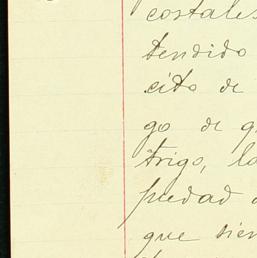 costales
tendido
cito de
go de g
trigo, la
piedad d
que sien